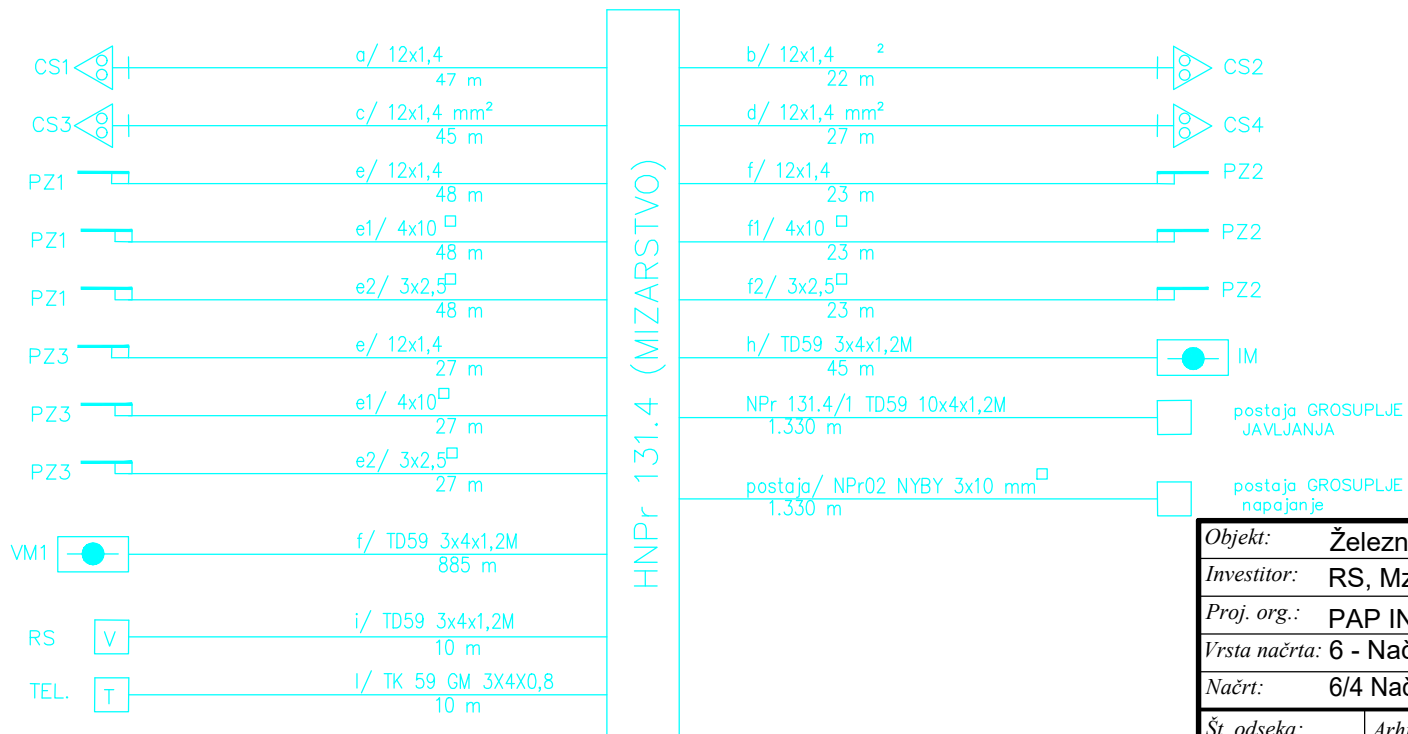 CS1 a/ 12x1,4
47 m
CS3 c/ 12x1,4 mm²
45 m
PZ1 e/ 12x1,4
48 m
PZ1 e1/ 4x10 □
48 m
PZ1 e2/ 3x2,5□
48 m
PZ3 e/ 12x1,4
27 m
PZ3 e1/ 4x10□
27 m
PZ3 e2/ 3x2,5□
27 m
VM1 f/ TD59 3x4x1,2M
885 m
RS V i/ TD59 3x4x1,2M
10 m
TEL. T l/ TK 59 GM 3X4X0,8
10 m
HNPr 131.4 (MIZARSTVO)
b/ 12x1,4 ² CS2
22 m
d/ 12x1,4 mm² CS4
27 m
f/ 12x1,4 PZ2
23 m
f1/ 4x10 □ PZ2
23 m
f2/ 3x2,5□ PZ2
23 m
h/ TD59 3x4x1,2M IM
45 m
NPr 131.4/1 TD59 10x4x1,2M
1.330 m
postaja GROSUPLJE
JAVLJANJA
postaja/ NPr02 NYBY 3x10 mm□
1.330 m
postaja GROSUPLJE
napajanje
Objekt: Železn
Investitor: RS, Mz
Proj. org.: PAP IN
Vrsta načrta: 6 - Nač
Načrt: 6/4 Nač
Št. odseka: Arh